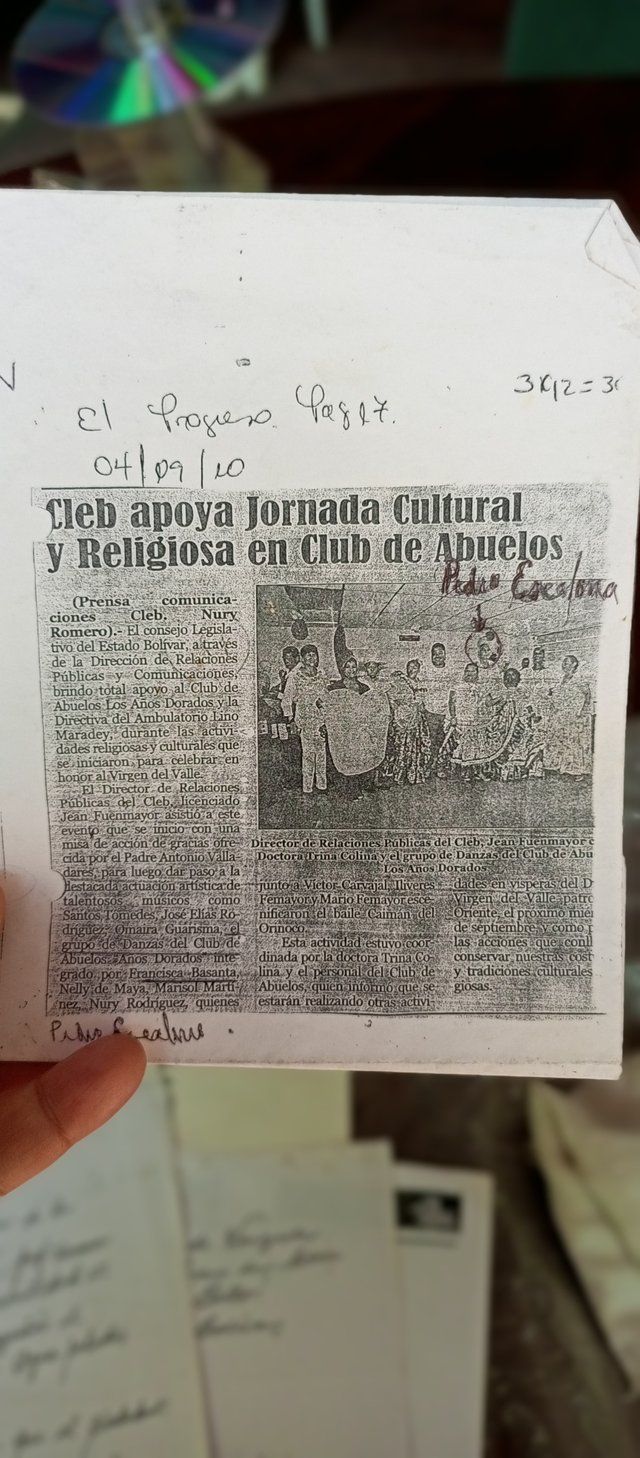 3x12=3
El Progreso. Pag 27.
04/09/10
Cleb apoya Jornada Cultural
y Religiosa en Club de Abuelos
Pedro Escalona
(Prensa comunica-
ciones Cleb. Nury
Romero).- El consejo Legisla-
tivo del Estado Bolívar, a través
de la Dirección de Relaciones
Públicas y Comunicaciones,
brindo total apoyo al Club de
Abuelos Los Años Dorados y la
Directiva del Ambulatorio Lino
Maradey, durante las activi-
dades religiosas y culturales que
se iniciaron para celebrar en
honor al Virgen del Valle.
El Director de Relaciones
Públicas del Cleb, licenciado
Jean Fuenmayor asistió a este
evento que se inicio con una
misa de acción de gracias ofre-
cida por el Padre Antonio Valla-
dares, para luego dar paso a la
destacada actuación artística de
talentosos músicos como
Santos Tomedes, José Elías Ro-
dríguez, Omaira Guarisma, el
grupo de Danzas del Club de
Abuelos Años Dorados inte-
grado por: Francisca Basanta,
Nelly de Maya, Marisol Marti-
nez, Nury Rodríguez, quienes
Director de Relaciones Públicas del Cleb; Jean Fuenmayor c
Doctora Trina Colina y el grupo de Danzas del Club de Abu
Los Años Dorados
junto a Víctor Carvajal, Iliveres
Femayor y Mario Femayor esce-
nificaron el baile Caimán del
Orinoco.
Esta actividad estuvo coor-
dinada por la doctora Trina Co-
lina y el personal del Club de
Abuelos, quien informo que se
estarán realizando otras activi-
dades en vísperas del D
Virgen del Valle patro
Oriente, el próximo mié
de septiembre, y como
las acciones que conll
conservar nuestras cost
y tradiciones culturales
giosas.
Pedro Escalona